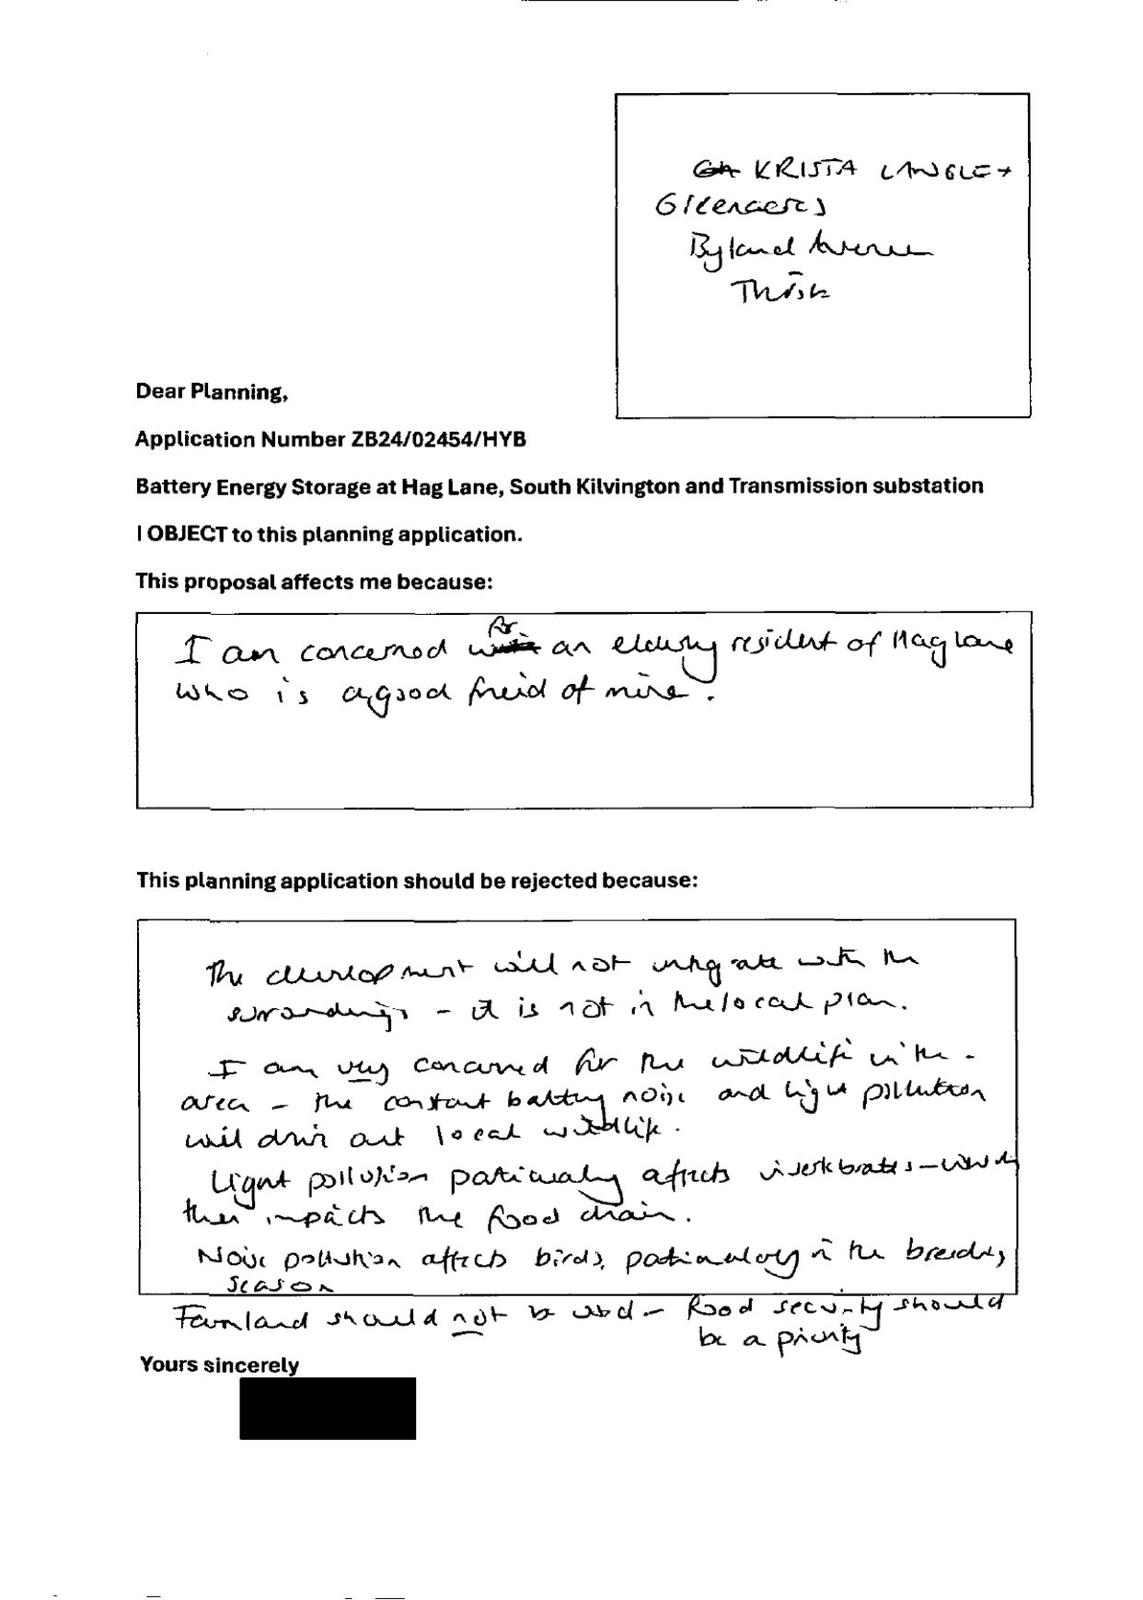 KRISTA LANGLEY
Greenacres
Byland Avenue
Thirsk
Dear Planning,
Application Number ZB24/02454/HYB
Battery Energy Storage at Hag Lane, South Kilvington and Transmission substation
I OBJECT to this planning application.
This proposal affects me because:
for
I am concerned an elderly resident of Hag Lane
who is a good freid of mine.
This planning application should be rejected because:
The development will not integrate with the
surroundings - it is not in the local plan.
I am very concerned for the wildlife in the -
area - the constant battery noise and light pollution
will drive out local wildlife.
Light pollution particularly affects invertebrates - which
then impacts the food chain.
Noise pollution affects birds, particularly in the breeding
season
Farmland should not be used - food security should
be a priority
Yours sincerely